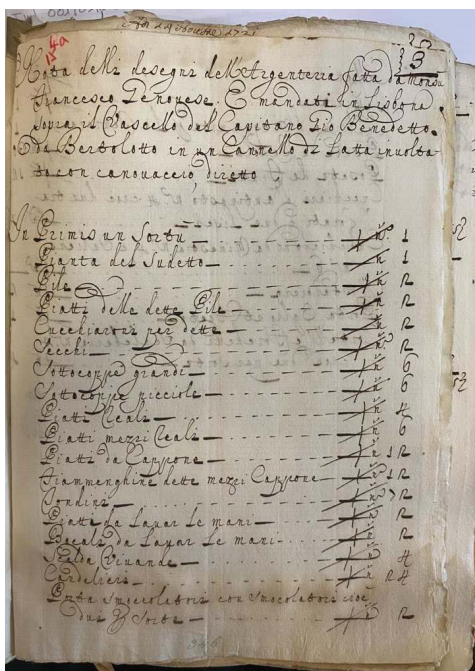 Nota delli desegni dell'Argenteria fatta da Monsu
Francesco Genouese. E mandati in Lisbona
sopra il Vascello del Capitano Gio Benedetto
da Bertolotto in un Cannello di Latta inuolta-
to con canouaccio, diretto
In Primis un Sortu n.º 1
Pianta del Sudetto n.º 1
Pile n.º 2
Piatti delle dette Pile n.º 2
Cucchiaroni per dette n.º 2
Secchi n.º 2
Sottocoppe grandi n.º 6
Sottocoppe picciole n.º 6
Piatti Reali n.º 4
Piatti mezzi Reali n.º 6
Piatti da Cappone n.º 12
Fiammenghine dette mezzi Cappone n.º 12
Tondini n.º 72
Piatti da lauar le mani n.º 2
Bocali da lauar le mani n.º 2
Scalda Viuande n.º 4
Candelieri n.º 24
Porta smoccolatori con smocolatori cioè
due Sorte n.º 2